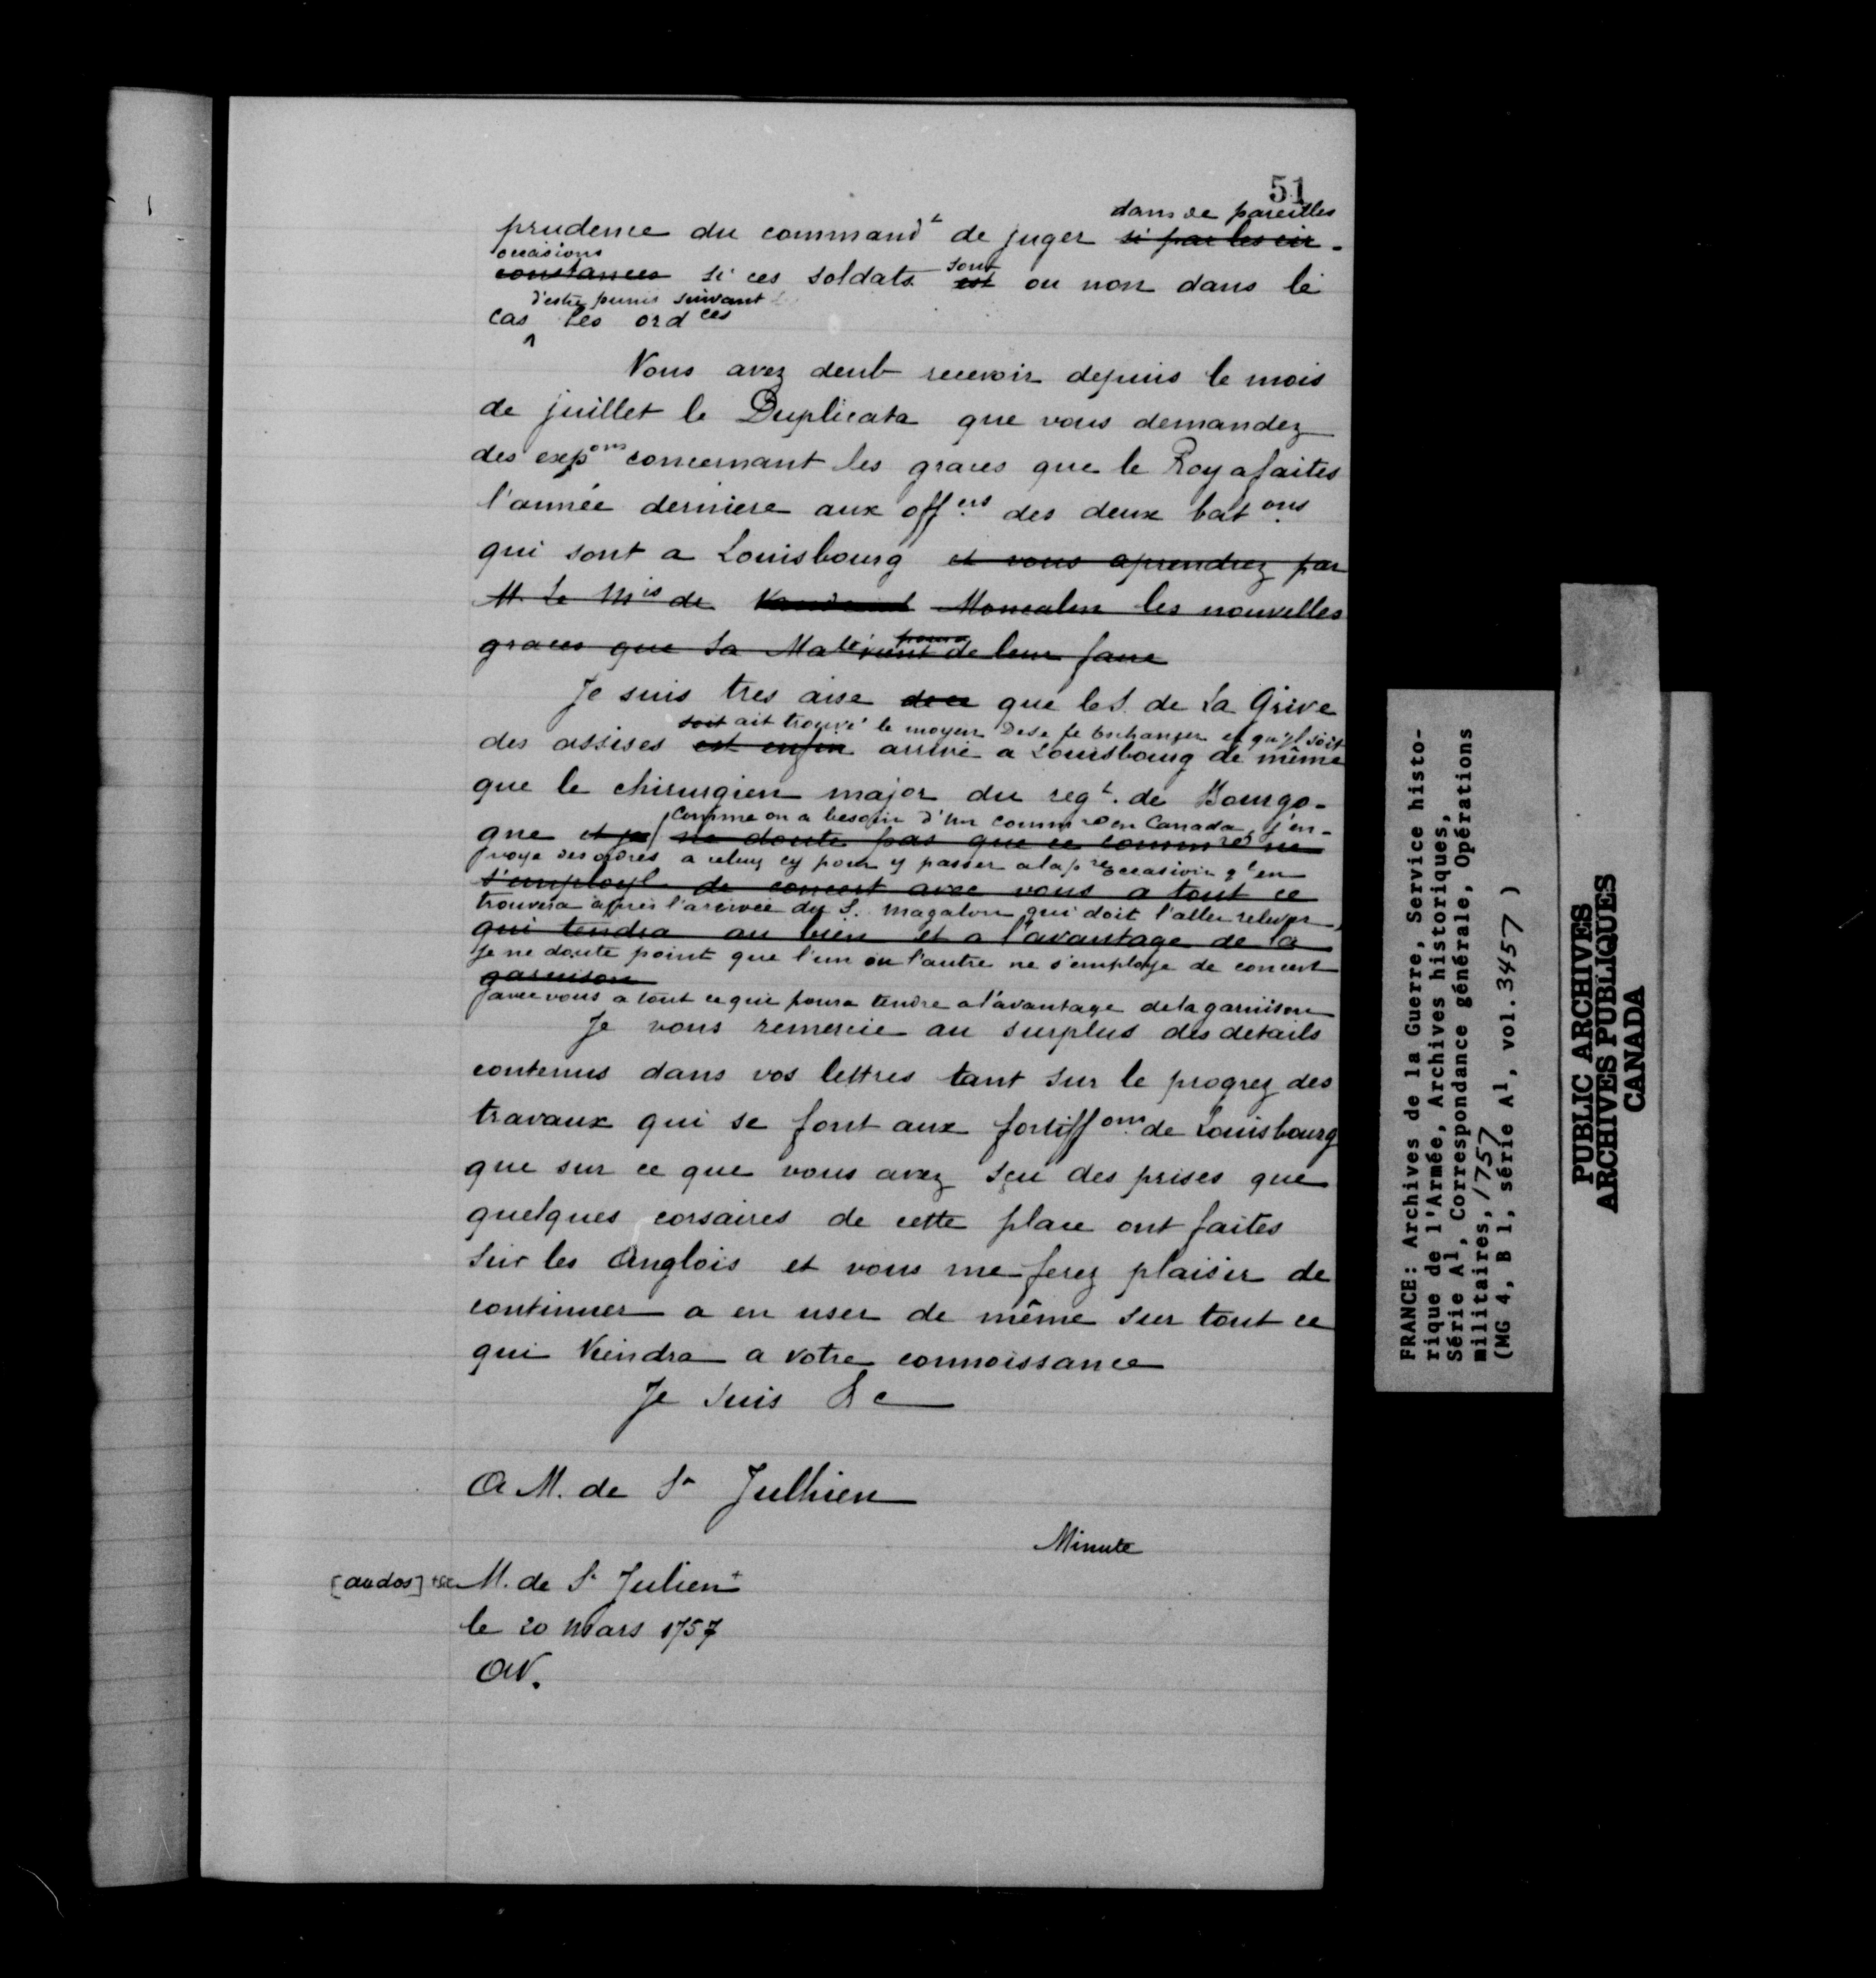 51
dans de pareilles
prudence du commandt de juger si par les cir-
occasions
constances si ces soldats sont est ou non dans le
d'estre punis suivant
cas les ordces
Vous avez deub recevoir depuis le mois
de juillet le Duplicata que vous demandez
des expons concernant les graces que le Roy a faites
l'année derniere aux offers des deux batons
qui sont a Louisbourg et vous aprendrez par
M. Le Mis de Moncalm les nouvelles
graces que Sa Maté vient de leur faire
Je suis tres aise de ce que le S. de La Grive
soit ait trouvé le moyen de se fe Eschanger et qu'il soit
des assises est enfin arrivé a Louisbourg de même
que le chirurgien major du regt. de Bourgo-
Comme on a besoin d'un commre en Canada, j'en-
gne et je ne doute pas que ce commre ne
voye des ordres a celuy cy pour y passer a la pre occasion qu'en
s'employe de concert avec vous a tout ce
trouvera après l'arrivée du S. Magalon qui doit l'aller relever
qui tendra au bien et a l'avantage de la
Je ne doute point que l'un ou l'autre ne s'employe de concert
garnison
avec vous a tout ce qui poura tendre a l'avantage de la garnison
Je vous remercie au surplus des details
contenus dans vos lettres tant sur le progrez des
travaux qui se font aux fortiffons de Louisbourg
que sur ce que vous avez sçu des prises que
quelques corsaires de cette place ont faites
sur les Anglois et vous me ferez plaisir de
continuer a en user de même sur tout ce
qui Viendra a votre connoissance
Je suis &c
A M. de St Julhien
Minute
[au dos] +sic M. de St Julien+
le 20 Mars 1757
AN.
FRANCE: Archives de la Guerre, Service histo-
rique de l'Armée, Archives historiques,
Série A1, Correspondance générale, Opérations
militaires, 1757
(MG 4, B 1, série A1, vol. 3457 )
PUBLIC ARCHIVES
ARCHIVES PUBLIQUES
CANADA